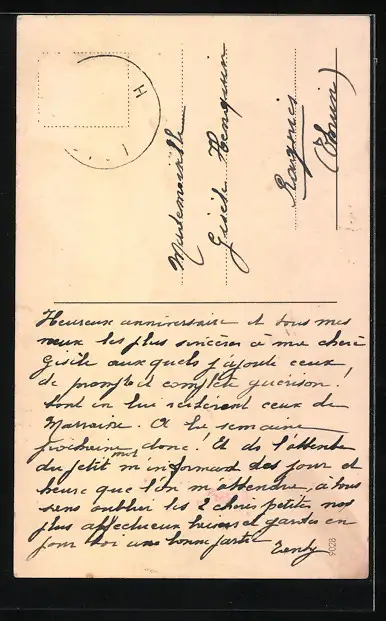 Mademoiselle
Gisèle Hennequin
Ragnies
(Thuin)
Heureux anniversaire et tous mes
vœux les plus sincères à ma chère
Gisèle auxquels j'ajoute ceux
de prompte et complète guérison !
tout en lui réitérant ceux de
Marraine. A la semaine
prochaine donc ! Et ds l'attente
du petit mot m'informant des jour et
heure que l'on m'attendra, à tous
sans oublier les 2 chères petites, mes
plus affectueux baisers et gardes en
pour toi une bonne partie
9028